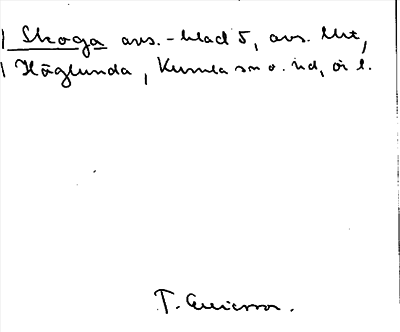 Skoga avs. - blad 5, avs. Urt,
Höglunda, Kumla sn o. hd, ör l.
T. Ericsson.